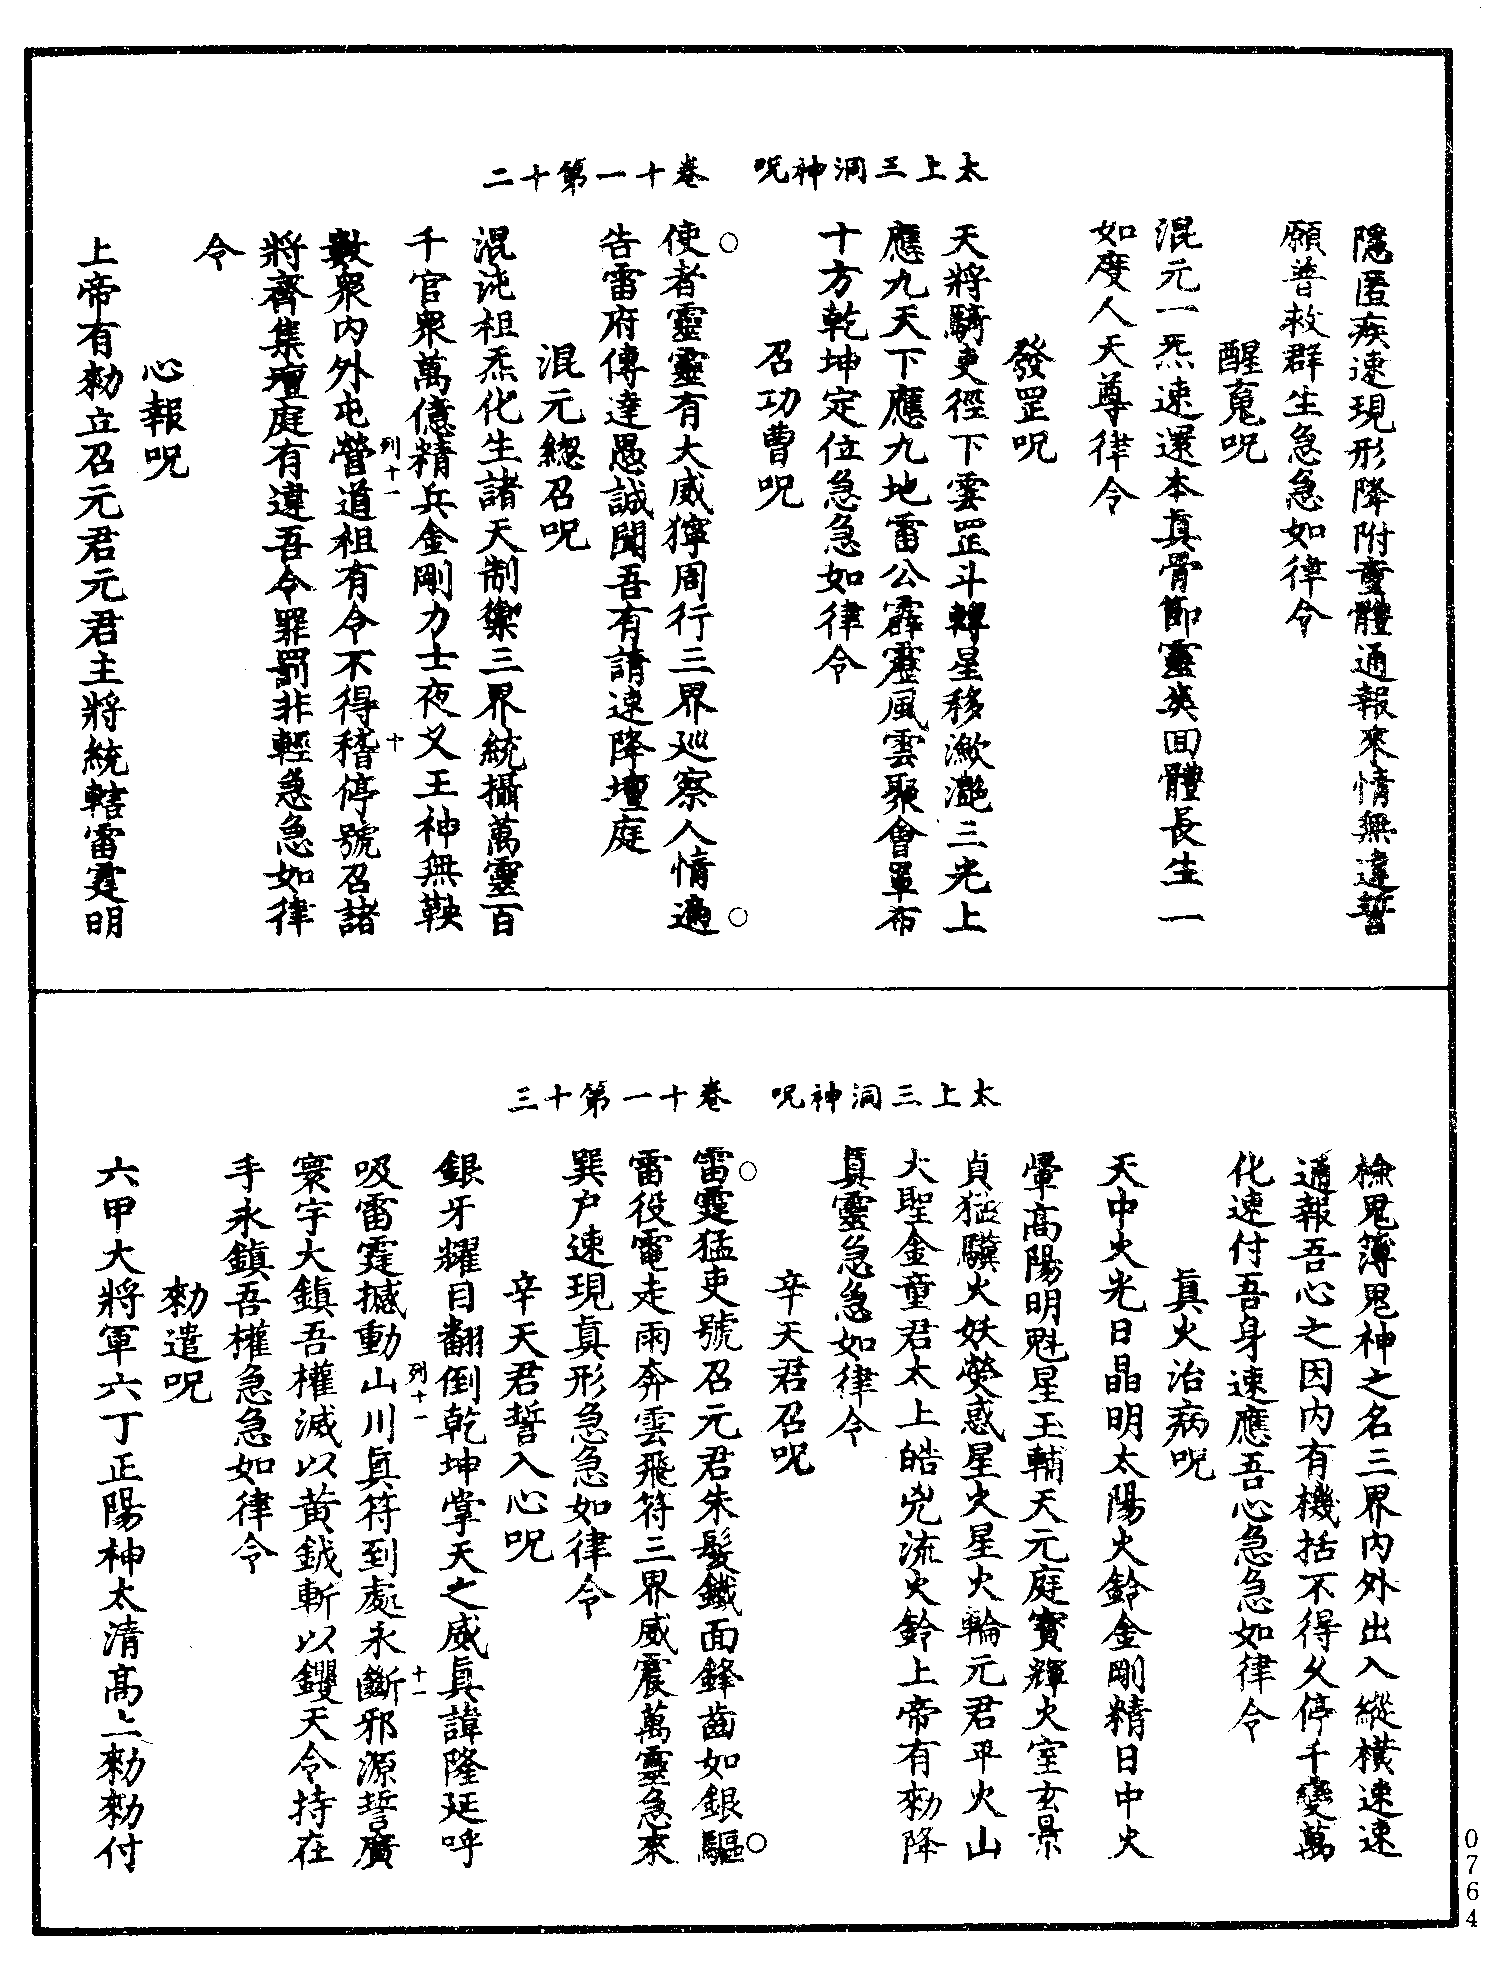 太上三洞神呪　卷十一第十二
隱匿疾速現形降附童體通報來情無違誓
願普救群生急急如律令
醒䰟呪
混元一炁速還本真骨節靈英回體長生一
如度人天尊律令
發罡呪
天將騎吏徑下雲罡斗轉星移潋灔三光上
應九天下應九地雷公霹靂風雲聚會罩布
十方乾坤定位急急如律令
召功曹呪
使者靈靈有大威獰周行三界巡察人情適
告雷府傳達愚誠聞吾有請速降壇庭
混元總召呪
混沌祖炁化生諸天制禦三界統攝萬靈百
千官衆萬億精兵金剛力士夜叉王神無鞅
列十一　十
數衆內外屯營道祖有令不得稽停號召諸
將齊集壇庭有違吾令罪罰非輕急急如律
令
心報呪
上帝有勑立召元君元君主將統轄雷霆明
太上三洞神呪　卷十一第十三
檢鬼簿鬼神之名三界內外出入縱橫速速
通報吾心之因內有機括不得久停千變萬
化速付吾身速應吾心急急如律令
真火治病呪
天中火光日晶明太陽火鈴金剛精日中火
暈高陽明魁星玉輔天元庭寶輝火室玄景
貞猛驥火妖熒惑星火星火輪元君平火山
大聖金童君太上皓兇流火鈴上帝有勑降
真靈急急如律令
辛天君召呪
雷霆猛吏號召元君朱髮鐵面鋒齒如銀驅
雷役電走雨奔雲飛符三界威震萬靈急來
巽户速現真形急急如律令
辛天君誓入心呪
銀牙耀目翻倒乾坤掌天之威真諱隆延呼
吸雷霆撼動山川真符到處永斷邪源誓廣
列十一　十一
寰宇大鎮吾權滅以黃鉞斬以钁天令持在
手永鎮吾權急急如律令
勑遣呪
六甲大將軍六丁正陽神太清高上勑勑付
0764